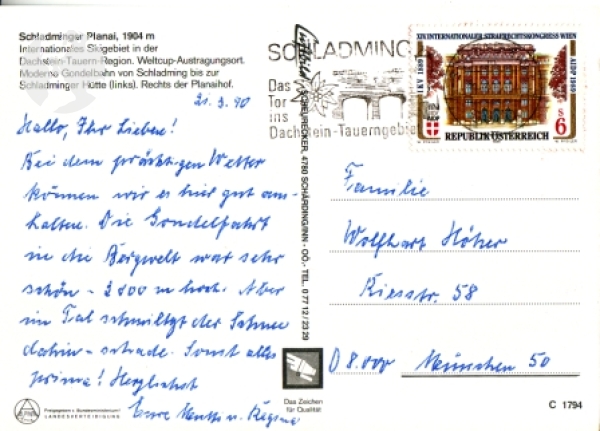 Schladminger Planai, 1904 m
Internationales Skigebiet in der
Dachstein-Tauern-Region. Weltcup-Austragungsort.
Moderne Gondelbahn von Schladming bis zur
Schladminger Hütte (links). Rechts der Planaihof.
21.3.90
Hallo, Ihr Lieben!
Bei dem prächtigen Wetter
können wir es hier gut aus-
halten. Die Gondelfahrt
in die Bergwelt war sehr
schön - 2800 m hoch. Aber
im Tal schmilzt der Schnee
dahin - schade. Sonst alles
prima! Herzlichst
Eure u. Regina
LANDESVERTEIDIGUNG
SCHLADMING
Das
Tor
ins
Dachstein-Tauerngebiet
SCHEURECKER, 4780 SCHÄRDING/INN - OÖ.- TEL. 0 77 12 / 23 29
Das Zeichen
für Qualität
XIV. INTERNATIONALER STRAFRECHTSKONGRESS WIEN
IKV 1889
AIDP 1989
REPUBLIK ÖSTERREICH
S 6
Familie
Wolfhart Höher
Kiesstr. 58
D 8.000 München 50
C 1794